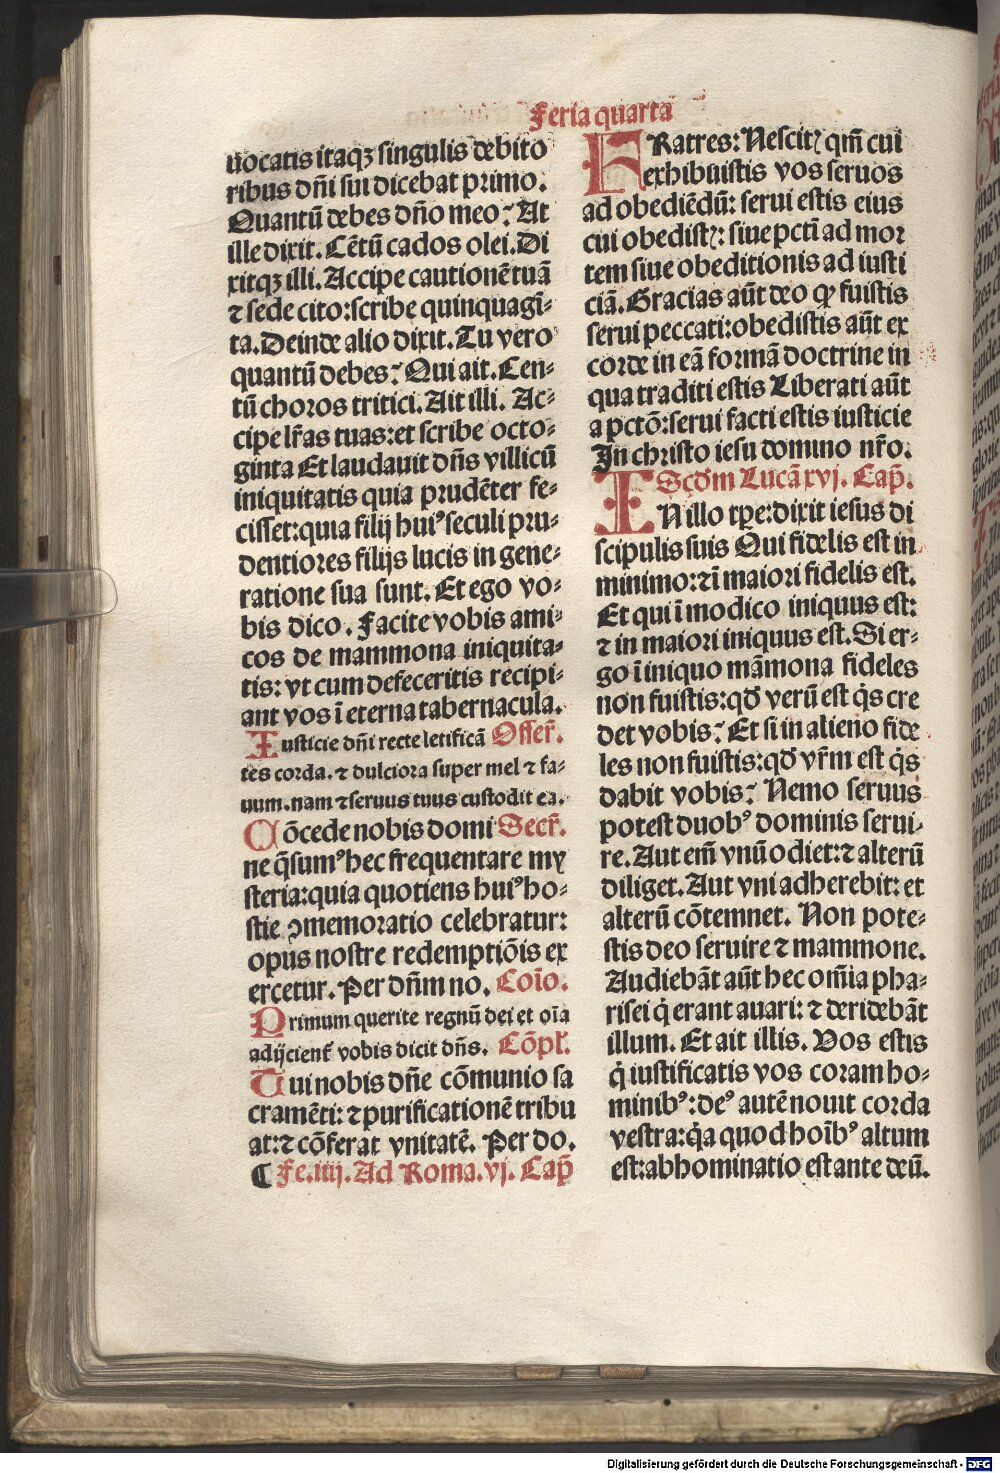 Feria quarta
uocatis itaqꝫ singulis debito
ribus dñi sui dicebat primo.
Quantũ debes dño meo? At
ille dixit. Cẽtũ cados olei. Di
xitqꝫ illi. Accipe cautionẽ tuã
⁊ sede cito: scribe quinquagĩ⸗
ta. Deinde alio dixit. Tu vero
quantũ debes? Qui ait. Cen⸗
tũ choros tritici. Ait illi. Ac⸗
cipe lr̃as tuas: et scribe octo⸗
ginta Et laudauit dñs villicũ
iniquitatis quia prudẽter fe⸗
cisset: quia filij huiꝰ seculi pru⸗
dentiores filijs lucis in gene⸗
ratione sua sunt. Et ego vo⸗
bis dico. Facite vobis ami⸗
cos de mammona iniquita⸗
tis: vt cum defeceritis recipi⸗
ant vos ĩ eterna tabernacula.
Iusticie dñi recte letificã Offer̃.
tes corda. ⁊ dulciora super mel ⁊ fa⸗
uum. nam ⁊ seruus tuus custodit ea.
Cõcede nobis domi Secr̃.
ne q̃sumꝰ hec frequentare my
steria: quia quotiens huiꝰ ho⸗
stie ꝯmemoratio celebratur:
opus nostre redemptiõis ex
ercetur. Per dñm no. Coĩo.
Primum querite regnũ dei et oĩa
adijcient̃ vobis dicit dñs. Cõpl̃.
Tui nobis dñe cõmunio sa
cramẽti: ⁊ purificationẽ tribu
at: ⁊ cõferat vnitatẽ. Per do.
¶ Fe. iiij. Ad Roma. vj. Cap̃
FRatres: Nescitꝭ qm̃ cui
exhibuistis vos seruos
ad obediẽdũ: serui estis eius
cui obedistꝭ: siue pcti ad mor
tem siue obeditionis ad iusti
ciã. Gracias aũt deo ꝙ fuistis
serui peccati: obedistis aũt ex
corde in eã formã doctrine in
qua traditi estis Liberati aũt
a pctõ: serui facti estis iusticie
In christo iesu domino nr̃o.
Scđm Lucã xvj. Cap̃.
IN illo tꝑe: dixit iesus di
scipulis suis Qui fidelis est in
minimo: ⁊ ĩ maiori fidelis est.
Et qui ĩ modico iniquus est:
⁊ in maiori iniquus est. Si er⸗
go ĩ iniquo mãmona fideles
non fuistis: qđ verũ est q̃s cre
det vobis? Et si in alieno fide
les non fuistis: qđ vr̃m est q̃s
dabit vobis? Nemo seruus
potest duobꝰ dominis serui⸗
re. Aut em̃ vnũ odiet: ⁊ alterũ
diliget. Aut vni adherebit: et
alterũ cõtemnet. Non pote⸗
stis deo seruire ⁊ mammone.
Audiebãt aũt hec om̃ia pha⸗
risei q̇ erant auari: ⁊ deridebãt
illum. Et ait illis. Vos estis
q̇ iustificatis vos coram ho⸗
minibꝰ: deꝰ autẽ nouit corda
vestra: q̇a quod hoĩbꝰ altum
est: abhominatio est ante deũ.
Digitalisierung gefördert durch die Deutsche Forschungsgemeinschaft - DFG